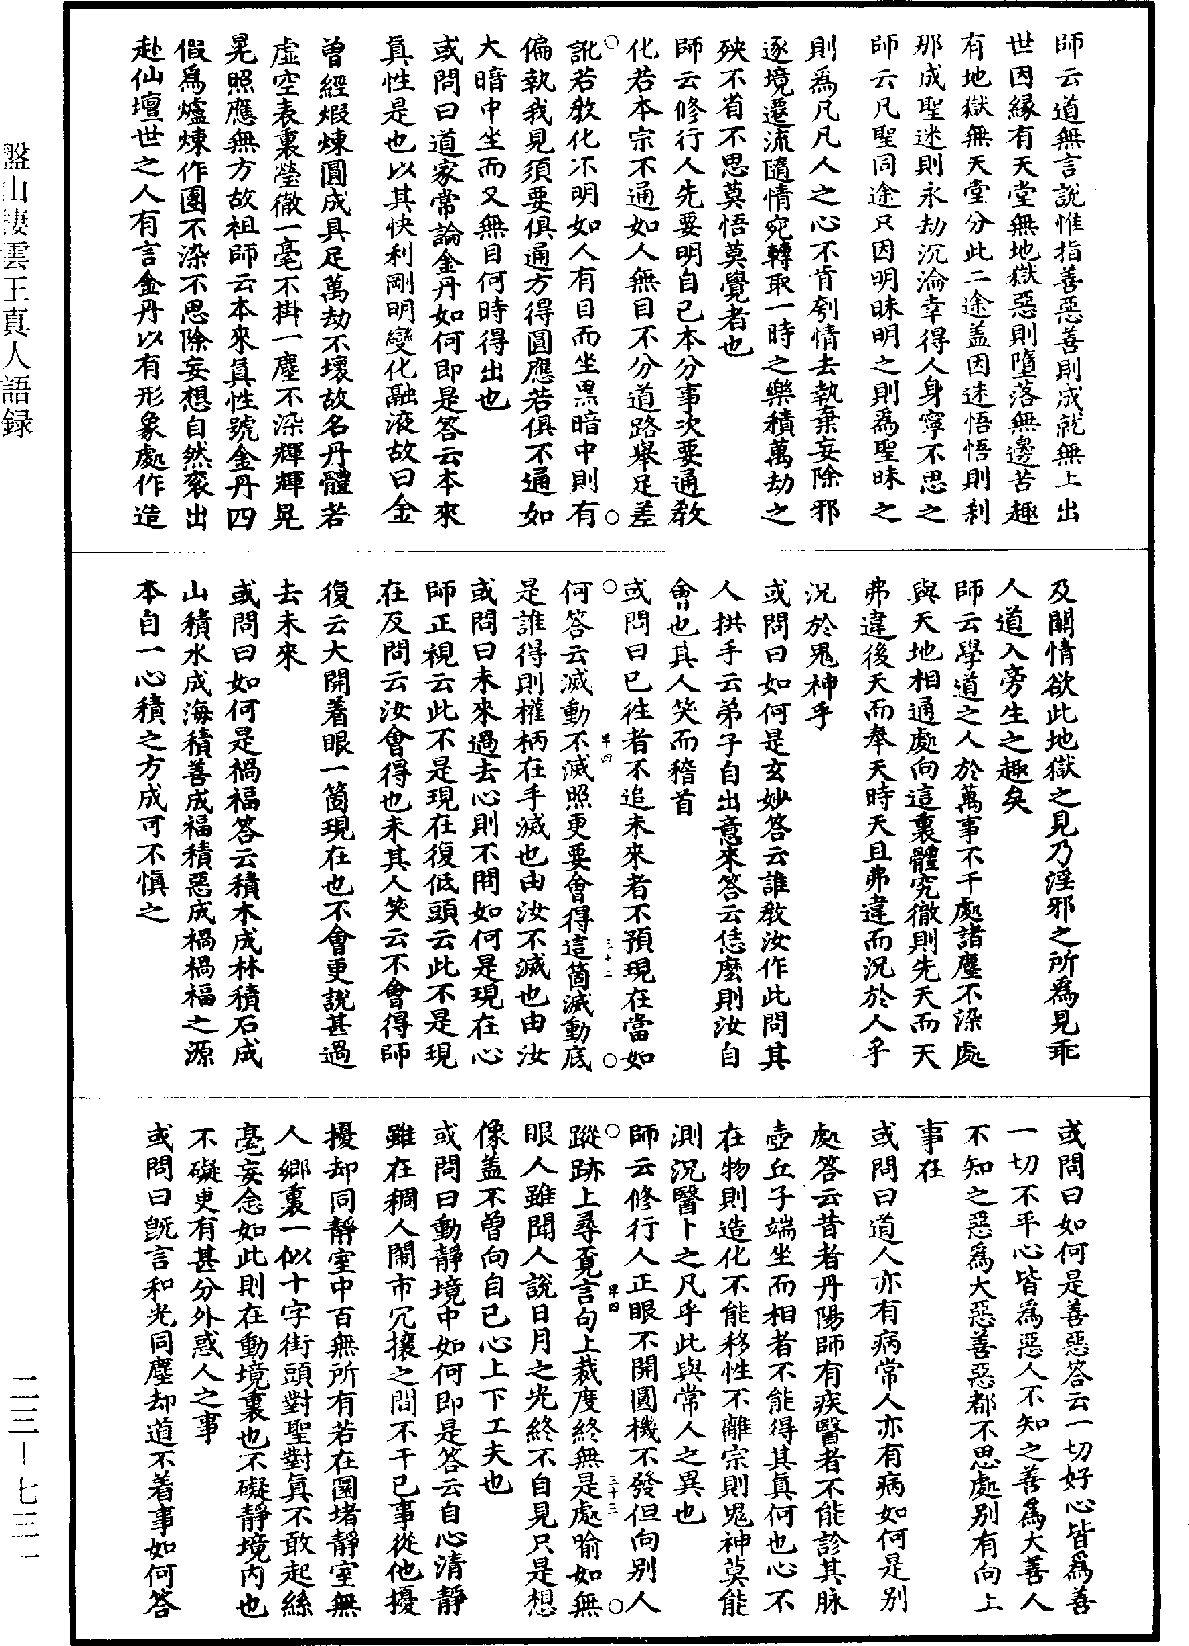 師云道無言說惟指善惡善則成就無上出
世因緣有天堂無地獄惡則墮落無邊苦趣
有地獄無天堂分此二途蓋因迷悟悟則刹
那成聖迷則永劫沉淪幸得人身寧不思之
師云凡聖同途只因明昧明之則為聖昧之
則為凡凡人之心不肯刳情去執棄妄除邪
逐境遷流隨情宛轉取一時之樂積萬劫之
殃不省不思莫悟莫覺者也
師云修行人先要明自己本分事次要通教
化若本宗不通如人無目不分道路舉足差
訛若教化不明如人有目而坐黑暗中則有
偏執我見須要俱通方得圓應若俱不通如
大暗中坐而又無目何時得出也
或問曰道家常論金丹如何即是答云本來
真性是也以其快利剛明變化融液故曰金
曾經煅煉圓成具足萬劫不壞故名丹體若
虛空表裏瑩徹一毫不掛一塵不染輝輝晃
晃照應無方故祖師云本來真性號金丹四
假為爐煉作團不染不思除妄想自然衮出
赴仙壇世之人有言金丹以有形象處作造
及關情欲此地獄之見乃淫邪之所為見乖
人道入旁生之趣矣
師云學道之人於萬事不干處諸塵不染處
與天地相通處向這裏體究徹則先天而天
弗違後天而奉天時天且弗違而況於人乎
況於鬼神乎
或問曰如何是玄妙答云誰教汝作此問其
人拱手云弟子自出意來答云恁麼則汝自
會也其人笑而稽首
或問曰已往者不追未來者不預現在當如
何答云滅動不滅照更要會得這箇滅動底
是誰得則權柄在手滅也由汝不滅也由汝
或問曰未來過去心則不問如何是現在心
師正視云此不是現在復低頭云此不是現
在反問云汝會得也未其人笑云不會得師
復云大開着眼一箇現在也不會更說甚過
去未來
或問曰如何是禍福答云積木成林積石成
山積水成海積善成福積惡成禍禍福之源
本自一心積之方成可不慎之
或問曰如何是善惡答云一切好心皆為善
一切不平心皆為惡人不知之善為大善人
不知之惡為大惡善惡都不思處別有向上
事在
或問曰道人亦有病常人亦有病如何是別
處答云昔者丹陽師有疾醫者不能診其脉
壺丘子端坐而相者不能得其真何也心不
在物則造化不能移性不離宗則鬼神莫能
測況醫卜之凡乎此與常人之異也
師云修行人正眼不開圓機不發但向別人
蹤跡上尋覓言句上裁度終無是處喻如無
眼人雖聞人說日月之光終不自見只是想
像蓋不曾向自己心上下工夫也
或問曰動靜境中如何即是答云自心清靜
雖在稠人鬧市冗攘之間不干己事從他擾
擾却同靜室中百無所有若在圜堵靜室無
人鄉裏一似十字街頭對聖對真不敢起絲
毫妄念如此則在動境裏也不礙靜境內也
不礙更有甚分外惑人之事
或問曰既言和光同塵却道不着事如何答
盤山棲雲王真人語録
二三－七三一